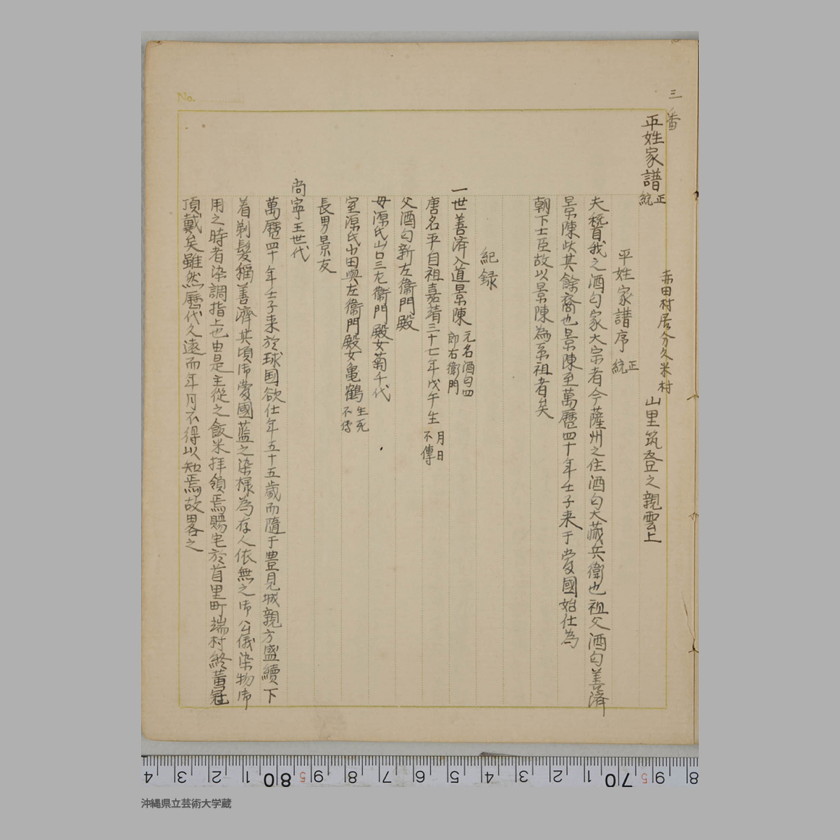 三番
平姓家譜 正統
赤田村居分久米村
山里筑登之親雲上
平姓家譜序 正統
夫稽我之酒匂家大宗者今薩州之住酒匂大藏兵衛也祖父酒匂善済
景陳此其餘裔也景陳至萬暦四十年壬子来于愛國始仕為
朝下士臣故以景陳為系祖者矣
紀録
一世善済入道景陳 元名酒匂四郎右衛門
唐名平自祖嘉靖三十七年戊午生 月日不傳
父酒匂新左衛門殿
母源氏山口三左衛門殿女菊千代
室源氏小田奥左衛門殿女亀鶴 生死不傳
長男景友
尚寧王世代
萬暦四十年壬子来於球国欲仕年五十五歳而隨于豊見城親方盛續下
着剃髪稱善済其頃御愛國藍之染様為存人依無之御公儀染物御
用之時者染調指上也由是主従之飯米拝領焉賜宅於首里町端村終黄冠
頂戴矣雖然暦代久遠而年月不得以知焉故畧之
No.
8 9 70 1 2 3 4 5 6 7 8 9 80 1 2 3 4
沖縄県立芸術大学蔵